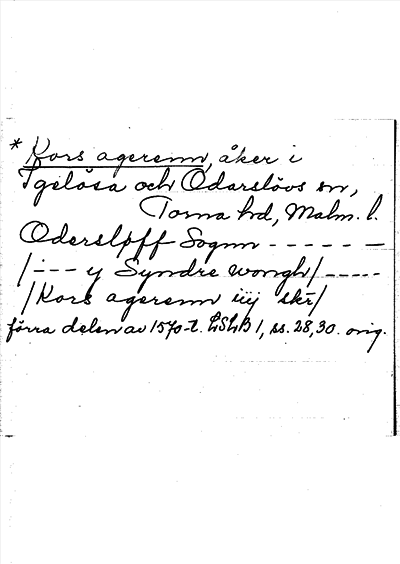 * Kors agerenn, åker i
Igelösa och Odarslövs sn,
Torna hd, Malm. l.
Odersløff Sognn - - - - - -
/- - - y Syndre wongh/ - - - - -
/Kors agerenn iiij skr/
förra delen av 1570-t. LSLB 1, ss. 28, 30. orig.